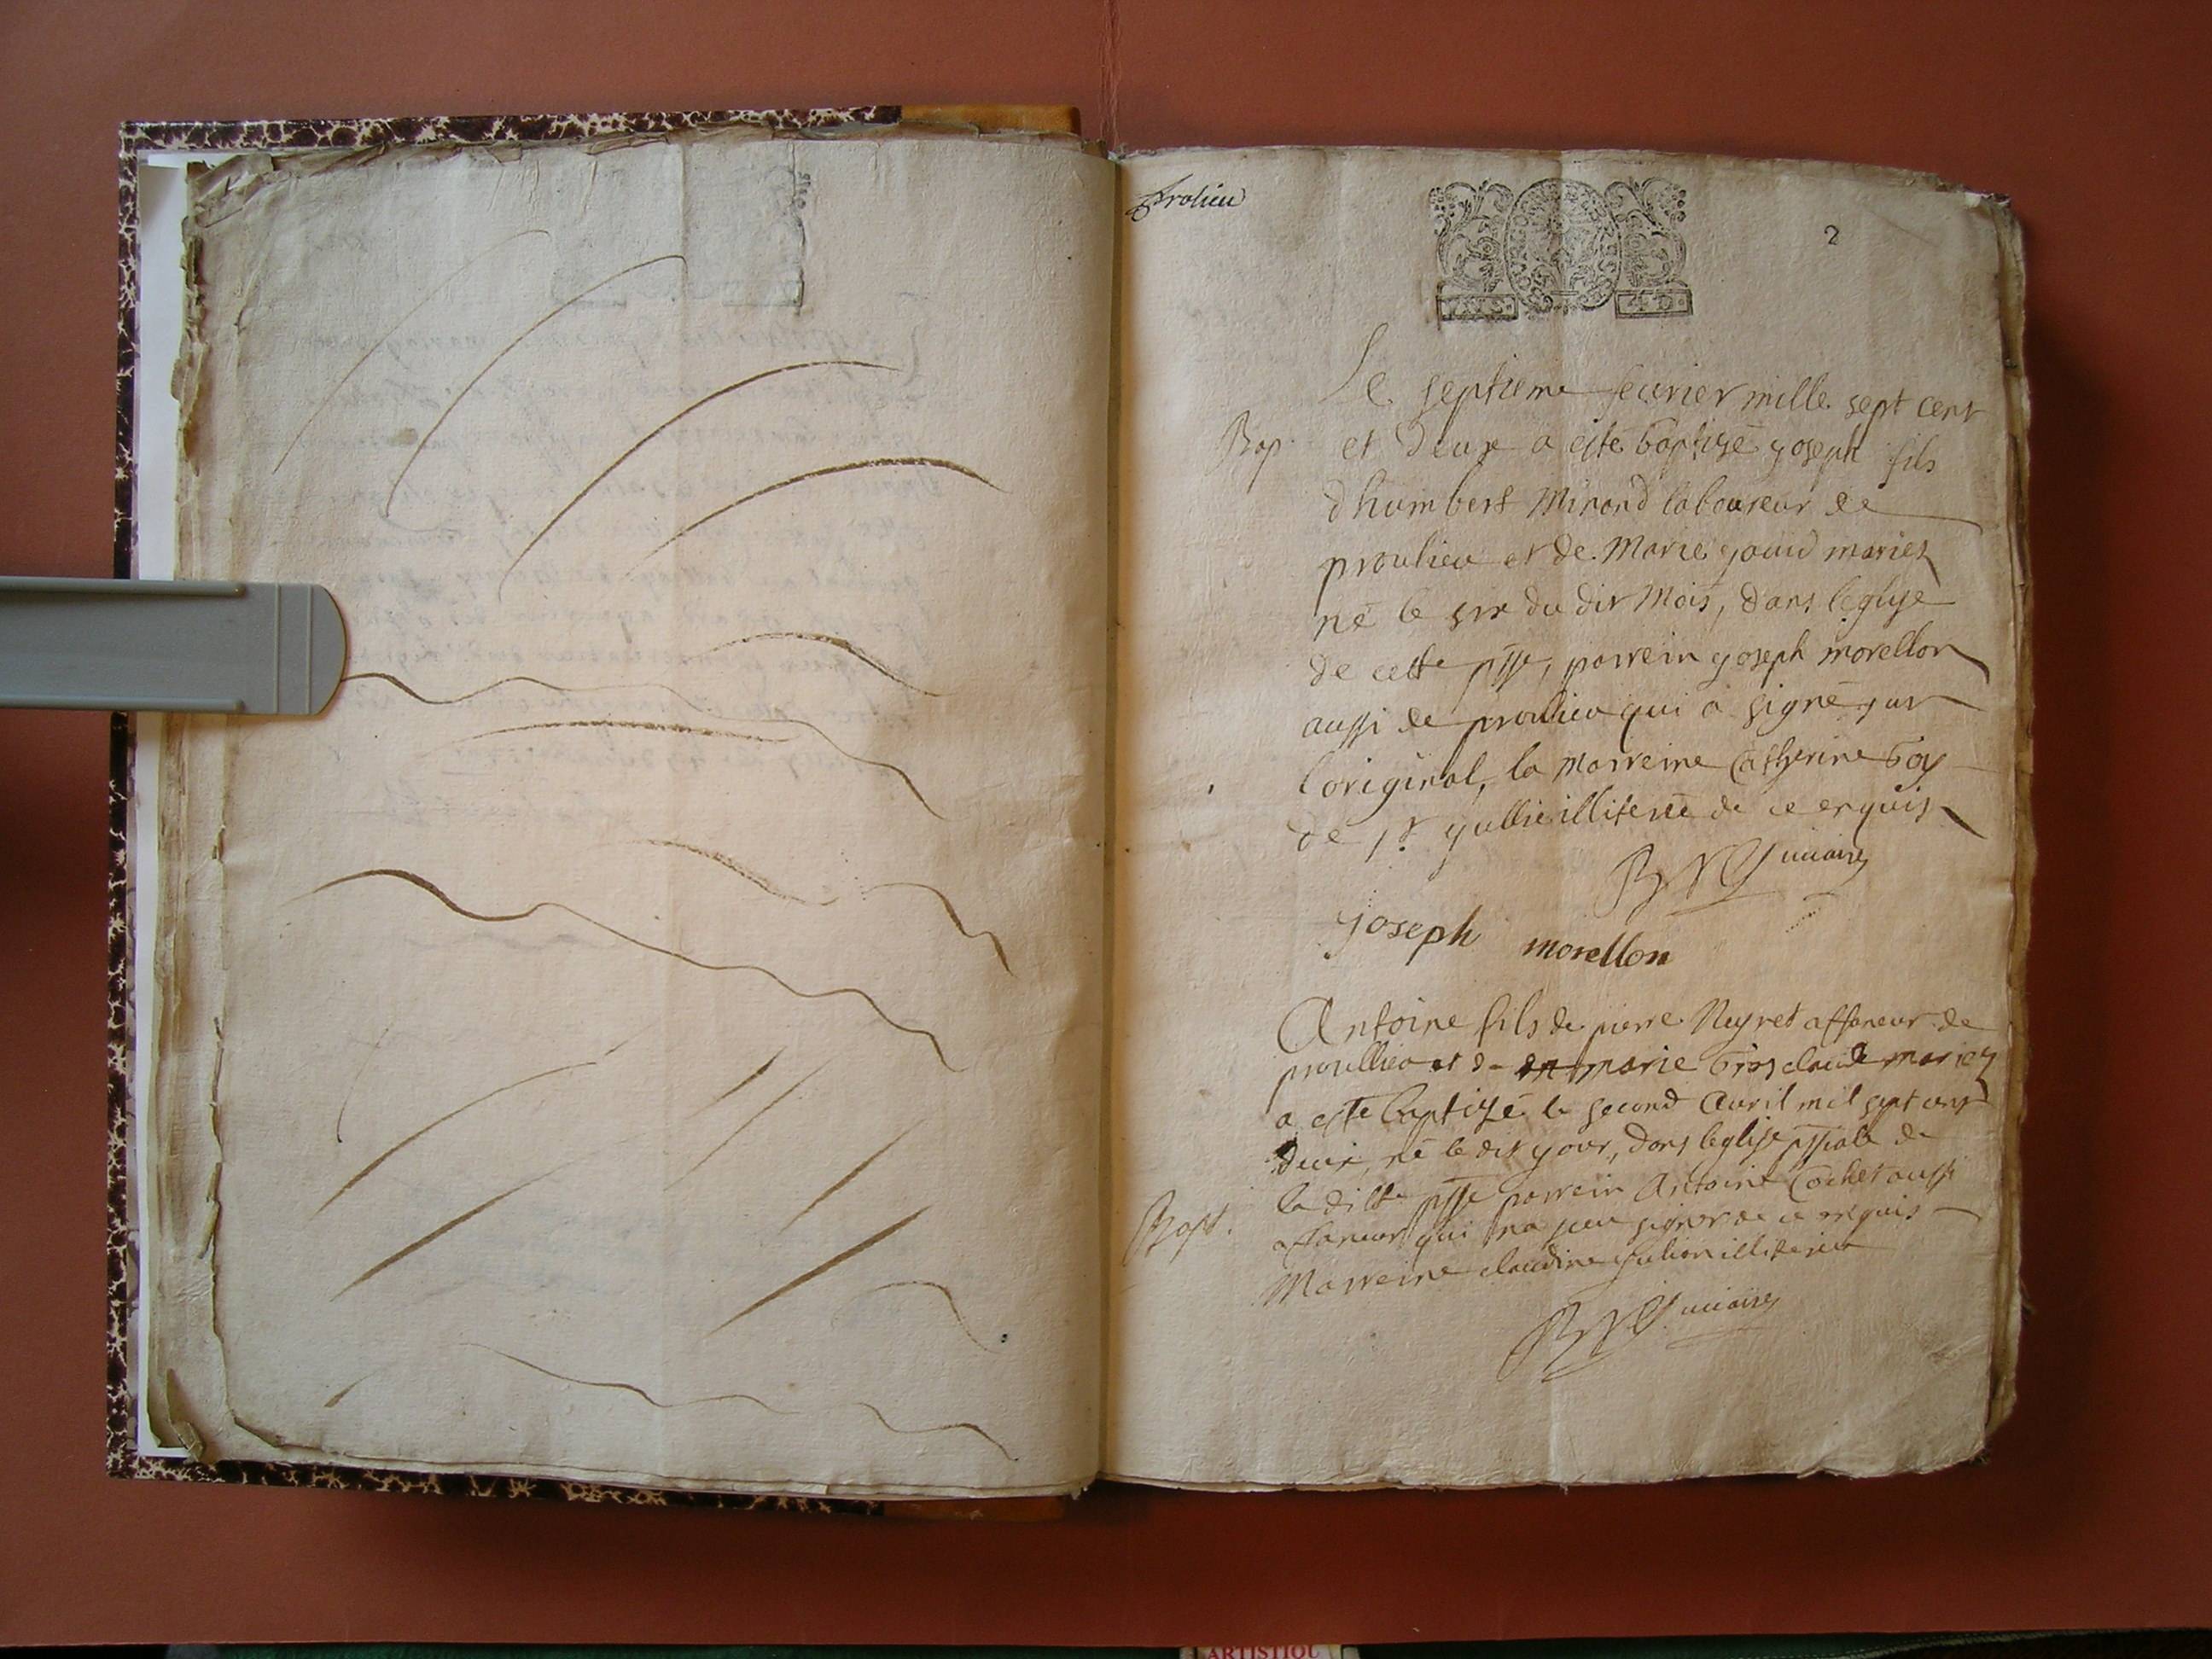 prolieu
2
Le septieme feuvrier mille sept cent
Bap. et deux a esté baptizé yoseph fils
d'humbert Mirand laboureur de
proulieu et de Marie yauid mariez
né le six du dit Mois, dans leglise
de cette psse, parrein yoseph morellon
aussi de proulieu qui a signé sur
loriginal, la Marreine Catherine
de st yullie illiteréé de ce enquis
joseph morellon
Antoine fils de pierre Neyret affaneur de
proullieu et de marie Grosclaude mariez
a esté baptizé le second Auril mil sept cent
deux, né le dit your, dans leglise pssiale de
Bapt. la ditte psse parrein Antoine Cochet aussi
affaneur qui na sceu signer de ce enquis
Marreine claudine yulion illiteréé
ARTISTIQU